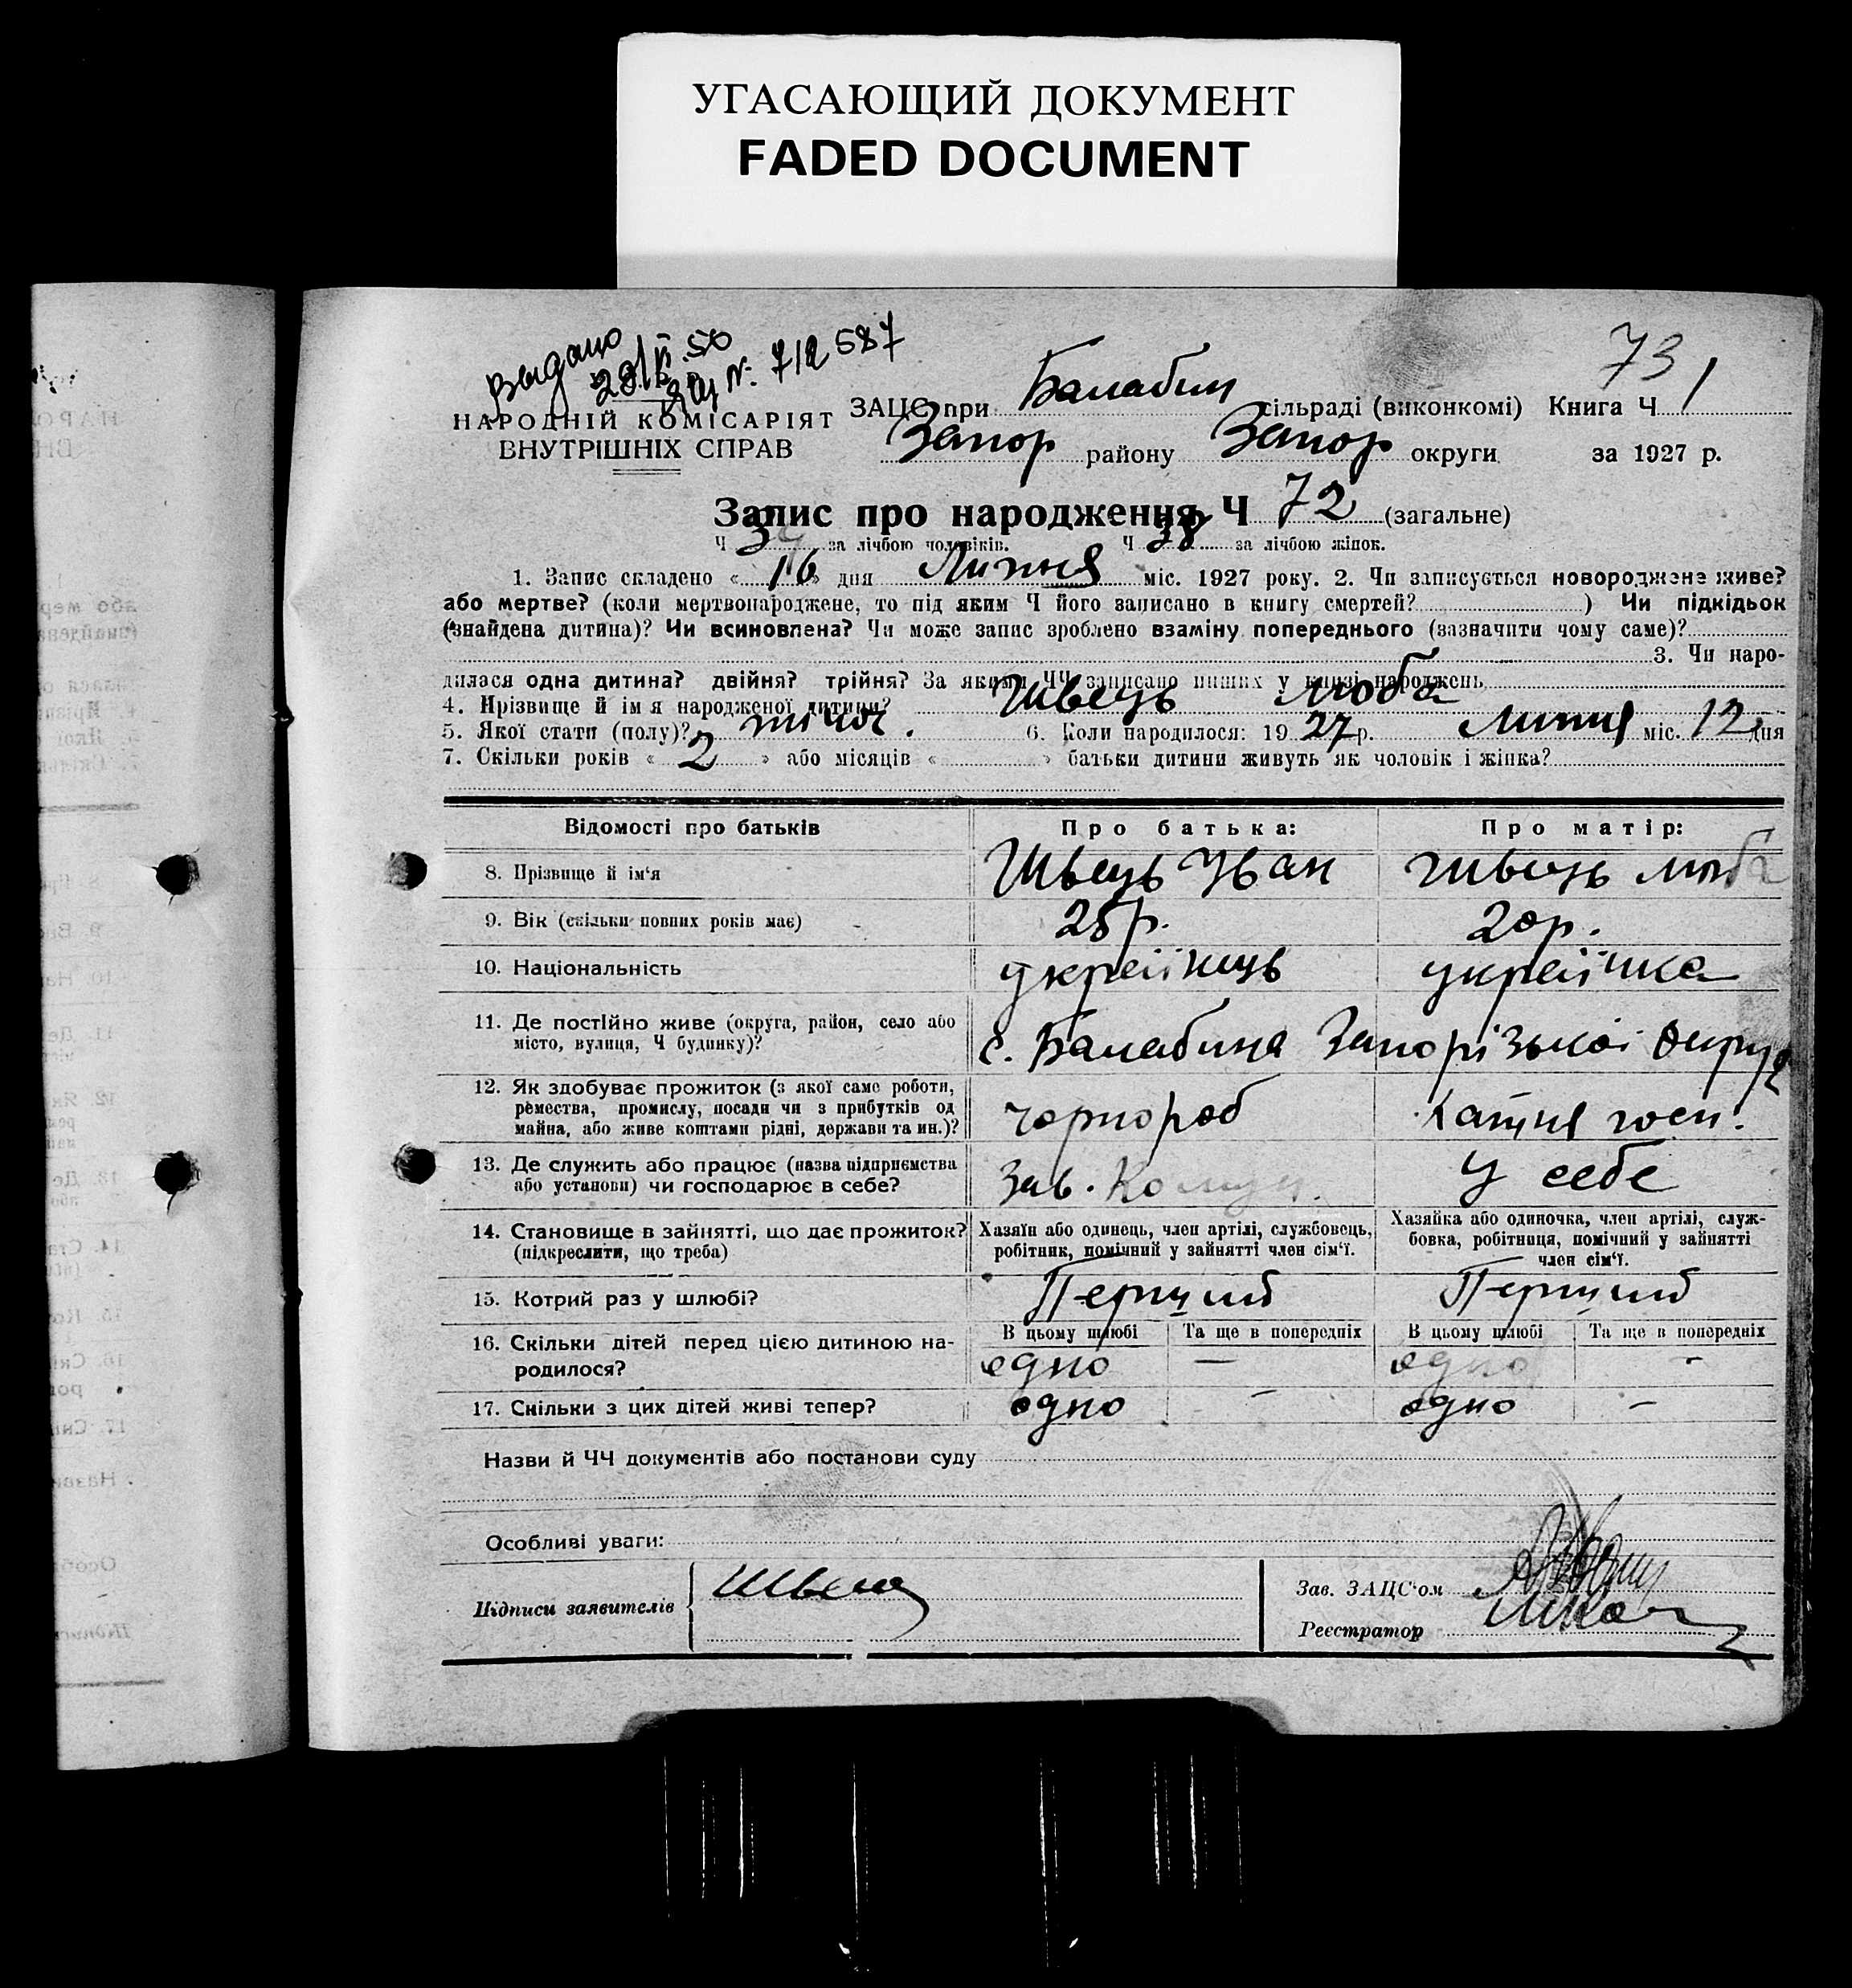 УГАСАЮЩИЙ ДОКУМЕНТ
FADED DOCUMENT
Выдано
№ 712587
73
НАРОДНІЙ КОМІСАРІЯТ
ВНУТРІШНІХ СПРАВ
ЗАЦС при Балабин сільраді (виконкомі) Книга Ч 1
Запор району Запор округи за 1927 р.
Запис про народження Ч 72 (загальне)
Ч 34 за лічбою чоловіків. Ч 38 за лічбою жінок.
1. Запис складено « 16 » дня Липня міс. 1927 року. 2. Чи записується новороджене живе?
або мертве? (коли мертвонароджене, то під яким Ч його записано в книгу смертей? ) Чи підкідьок
(знайдена дитина)? Чи всиновлена? Чи може запис зроблено взаміну попереднього (зазначити чому саме)?
3. Чи наро-
дилася одна дитина? двійня? трійня? За якими ЧЧ записано инших у книзі народжень
4. Прізвище й ім'я народженої дитини? Швець Люба
5. Якої стати (полу)? жіноч. 6. Коли народилося: 1927 р. Липня міс. 12 дня
7. Скільки років « 2 » або місяців « » батьки дитини живуть як чоловік і жінка?
Відомості про батьків Про батька: Про матір:
8. Прізвище й ім'я Швець Іван Швець Люба
9. Вік (скільки повних років має) 25 р. 20 р.
10. Національність українець українка
11. Де постійно живе (округа, район, село або
місто, вулиця, Ч будинку)? с. Балабина Запорізькоі Округ
12. Як здобуває прожиток (з якої саме роботи,
ремества, промислу, посади чи з прибутків од
майна, або живе коштами рідні, держави та ин.)? чорнороб Хатня госп.
13. Де служить або працює (назва підприємства
або установи) чи господарює в себе? Зав. Комун. У себе
14. Становище в зайнятті, що дає прожиток?
(підкреслити, що треба)
Хазяїн або одинець, член артілі, службовець,
робітник, помічний у зайнятті член сім'ї.
Хазяйка або одиночка, член артілі, служ-
бовка, робітниця, помічний у зайнятті
член сім'ї.
15. Котрий раз у шлюбі? Перший Перший
16. Скільки дітей перед цією дитиною на-
родилося?
В цьому шлюбі Та ще в попередніх В цьому шлюбі Та ще в попередніх
одно — одно -
17. Скільки з цих дітей живі тепер? одно - одно -
Назви й ЧЧ документів або постанови суду
Особливі уваги:
Підписи заявителів Швець
Зав. ЗАЦС'ом
Реєстратор